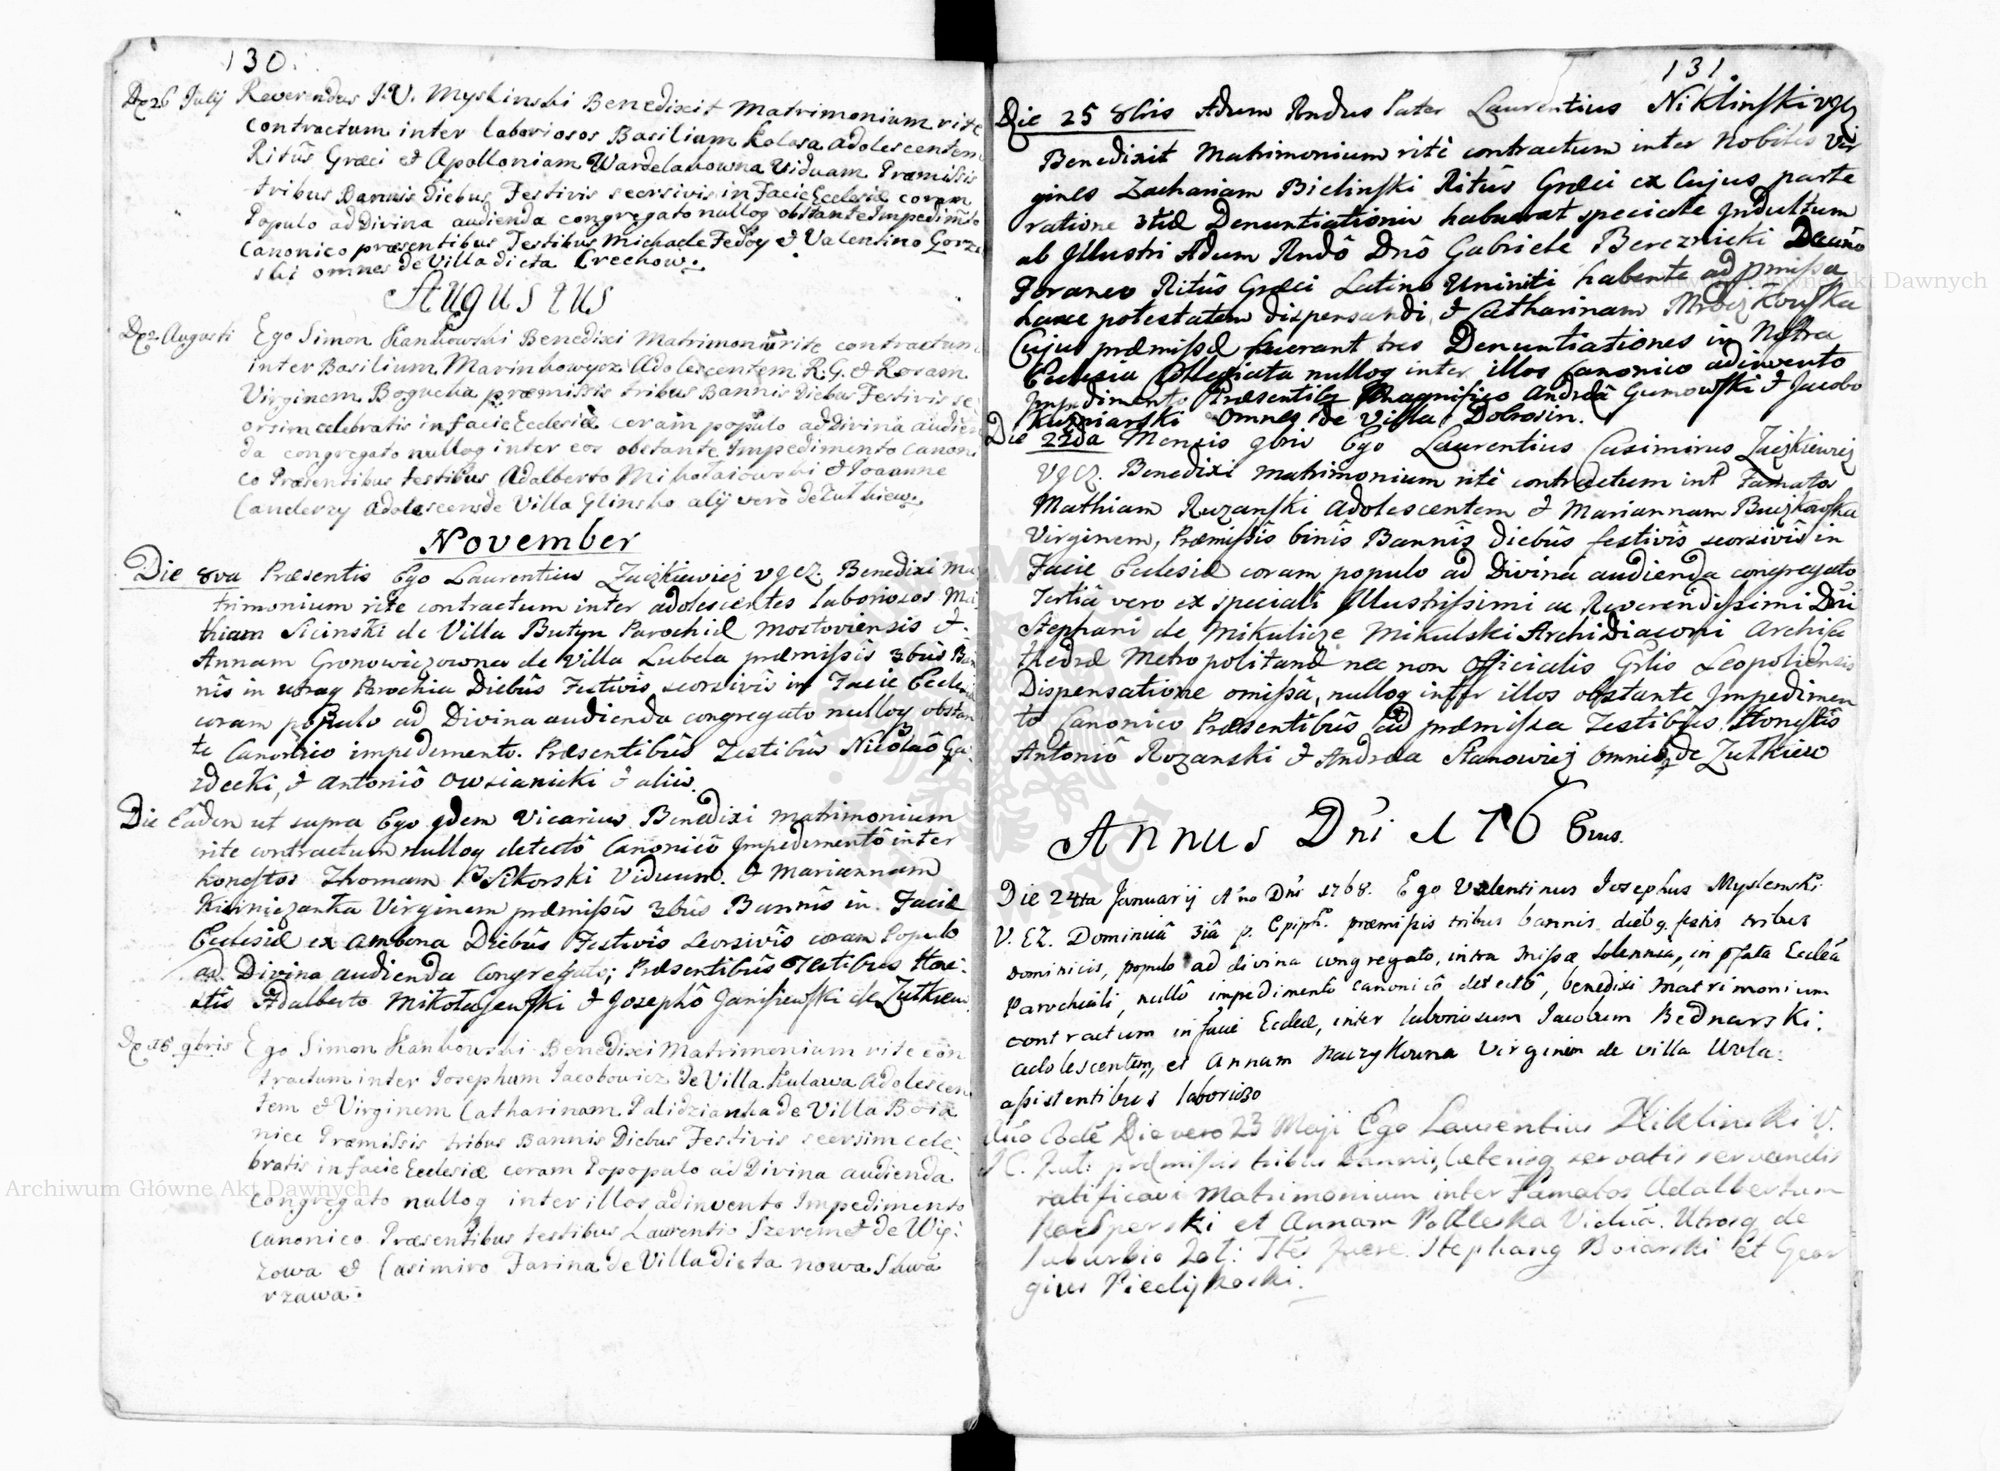 130.
De 26 Julij Reverendus J.V. Myslinski Benedixit Matrimonium rite
contractum inter laboriosos Basilium Kolasa adolescentem
Ritûs Græci et Apolloniam Wardelakowna Viduam Præmissis
tribus Bannis Diebus Festivis seorsivis in Facie Ecclesiæ coram
Populo ad Divina audienda congregato nulloq obstante Impedimto
Canonico præsentibus Testibus Michaele Fedoy et Valentino Gorze
ski omnes de Villa dicta Crechow.
Augustus
De 2 Augusti Ego Simon Kankowski Benedixi Matrimonium rite contractum
inter Basilium Marinkowycz Adolescentem R.G. et Rosam
Virginem Bogucka præmissis tribus Bannis Diebus Festivis se
orsim celebratis in facie Ecclesiæ coram populo ad Divina audien
da congregato nulloq inter eos obstante Impedimento Canoni
co Præsentibus testibus Adalberto Mikolaiowski et Joanne
Canderzy Adolescens de Villa Glinsko alij verò de Zulkiew.
November
Die 8va Præsentis Ego Laurentius Zuczkiewicz VGEZ Benedixi Ma
trimonium rite contractum inter adolescentes laboriosos Ma
thiam Sicinski de Villa Butyn Parochiæ Mostoviensis et
Annam Gronowiczowna de Villa Lubela præmissis 3bus Ban
nis in utraq Parochia Diebûs Festivîs seorsivîs in Facie Ecclesiæ
coram populo ad Divina audienda congregato nulloq obstan
te Canonico impedimento. Præsentibûs Testibûs Nicolaô Ga
zdecki, et Antoniô Owsianicki et aliis.
Die Eâdem ut supra Ego qdem Vicarius Benedixi matrimonium
rite contractum nulloq detectô Canonicô Impedimentô inter
honestos Thomam Sikorski Viduum et Mariannam
Kiliniczanka Virginem præmissis 3bûs Bannîs in Facie
Ecclesiæ ex ambona Diebûs Festivîs seorsivîs coram Populo
ad Divina audienda congregato; Præsentibûs Testibus Hone
stis Adalberto Mikołajewski et Josephô Janiszewski de Zutkiew.
De 25 9bris Ego Simon Kankowski Benedixi Matrimonium rite con
tractum inter Josephum Jacobowicz De Villa Kulawa Adolescen
tem et Virginem Catharinam Palidzianka de Villa Boia
niec Præmissis tribus Bannis Diebus Festivis seorsim cele
bratis in facie Ecclesiæ coram Popopulo ad Divina audienda
congregato nulloq inter illos adinvento Impedimento
Canonico Præsentibus testibus Laurentio Szeremet de Wię
zowa et Casimiro Farina de Villa dicta nowa Skwa
rzawa.
131.
Die 25 8bris Adum Rndus Pater Laurentius Niklinski VGEZ
Benedixit Matrimonium ritè contractum inter Nobiles Vir
gines Zachariam Bielinski Ritûs Græci ex cujus parte
ratione 3tiæ Denuntiationis habuerat speciale Indultum
ab Illustri Adum Rndô Dnô Gabriele Bereznicki Decano
Foraneo Ritûs Græci Latino Uniniti habente ad pmissa
hæce potestatem dispensandi, et Catharinam Mroczkowska
Cujus præmissæ fuerant tres Denuntiationes in Nostra
Ecclesia Collegiata nulloq inter illos canonico adinvento
Impedimento Præsentibq Magnifico Andreâ Gumowski et Jacobo
Kuzniarski Omneq de Villa Dobrosin.
Die 22da Mensis 9bris Ego Laurentius Casimirus Zuczkiewicz
VGEZ. Benedixi matrimonium ritè contractum intr Famatos
Mathiam Rozanski Adolescentem et Mariannam Buczkowska
Virginem, Præmissîs binîs Bannîs Diebûs festivîs seorsivîs in
Facie Ecclesiæ coram populo ad Divina audienda congregato
Tertiâ vero ex speciali Illustrissimi ac Reverendissimi Dni
Stephani de Mikulicze Mikulski Archidiaconi Archica
thedræ Metropolitanæ nec non Officialis Grlis Leopoliensis
Dispensatione omissâ, nulloq inter illos obstante Impedimen
to Canonico Præsentibûs ad præmissa Testibûs Honestîs
Antoniô Rozanski et Andrea Stanowicz omnibq de Zutkiew
Annus Dni 176 8vus.
Die 24ta Januarij Ano Dni 1768. Ego Valentinus Josephus Myslenski
V. EZ. Dominicâ 3iâ p. Epiph. præmissis tribus bannis diebq festis tribus
Dominicis, populo ad divina congregato, intra Missæ solennia, in pfata Ecclea
Parochiali, nullô impedimentô canonicô detectô, benedixi Matrimonium
contractum in facie Eccleæ, inter laboriosum Jacobum Bednarski,
adolescentem, et Annam Kaczykowna Virginem de villa Wola:
assistentibus laborioso
Ano eodê Die vero 23 Maji Ego Laurentius Niklinski V.
præmissis tribus bannis, cæterisq servatis servandis
ratificavi Matrimonium inter Famatos Adalbertum
Kacsperski et Annam Podleska Viduâ. Utrosq de
suburbio Zol: Tstes fuere Stephang Boiarski et Geor
gius Piedijkoski.
Archiwum Główne Akt Dawnych
Archiwum Główne Akt Dawnych